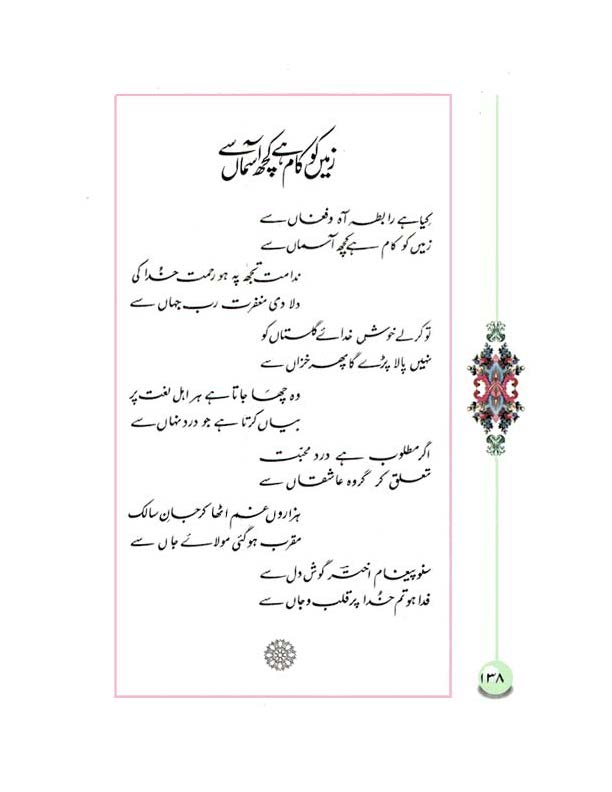 زمیں کو کام ہے کچھ آسماں سے
کیا ہے رابطہ آہ و فغاں سے
زمیں کو کام ہے کچھ آسماں سے
ندامت تجھ پہ ہو رحمت خدا کی
دلا دی مغفرت رب جہاں سے
تو کرلے خوش خدائے گلستاں کو
نہیں پالا پڑے گا پھر خزاں سے
وہ چھا جاتا ہے ہر اہل لغت پر
بیاں کرتا ہے جو دردِ نہاں سے
اگر مطلوب ہے دردِ محبت
تعلق کر گروہ عاشقاں سے
ہزاروں غم اٹھا کر جانِ سالک
مقرب ہوگئی مولائے جاں سے
سنو پیغام اخترؔ گوش دل سے
فدا ہو تم خدا پر قلب و جاں سے
۱۳۸